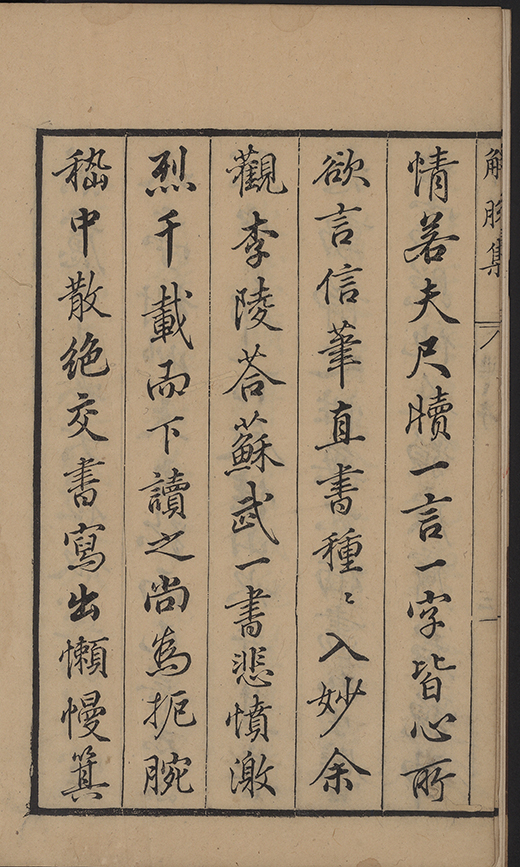 解脫集
情若夫尺牘一言一字皆心所
欲言信筆直書種〻入妙余
觀李陵荅蘇武一書悲憤激
烈千載而下讀之尚爲扼腕
嵇中散絶交書寫出懶慢箕